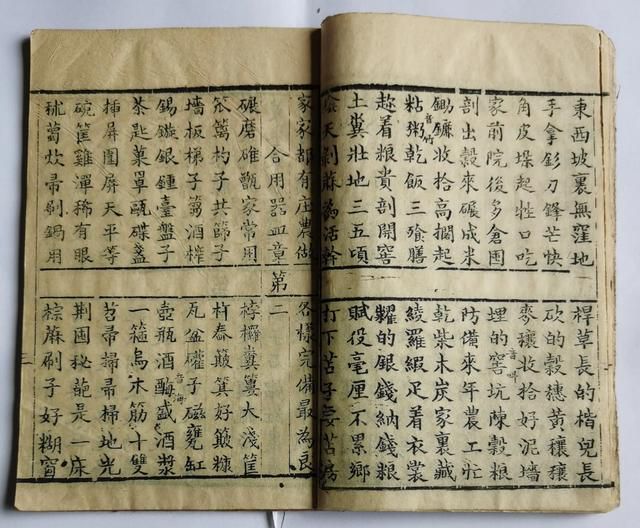 東西坡裏無窪地 桿草長的楷兒長
手拿釤刀鋒芒快 砍的穀穗黃穰穰
角皮垛起牲口吃 麥穰收拾好泥墻
家前院後多倉囤 埋的窖音叫坑陳穀粮
剖出穀來碾成米 防備來年農工忙
鋤鐮收拾高擱起 乾柴木炭家裏藏
粘粥音竹乾飯三飱膳 綾羅緞足着衣裳
趂着粮貴剖開窖 糶的銀錢納錢粮
土糞壯地三五頃 賦役毫厘不累鄉
陰天剝蔴為活幹 打下苫子妻苫房
家家都有庄農做 各樣完備最為良
合用器皿章第二
碾磨碓甑家常用 桲欏糞簍大淺筐
笊篱杓子共篩子 杵舂簸箕好簸糠
墻板梯子筲酒榨 瓦盆罐子磁甕缸
錫鏇銀鍾臺盤子 壺瓶酒音海盛酒漿
茶匙菓罩甌碟盞 一箍烏木筯十雙
插屏圍屏天平等 苕帚掃帚掃地光
碗筐雞渾稀有眼 荆囤秘是一床
秫葛炊帚刷鍋用 棕蔴刷子好糊窗
三